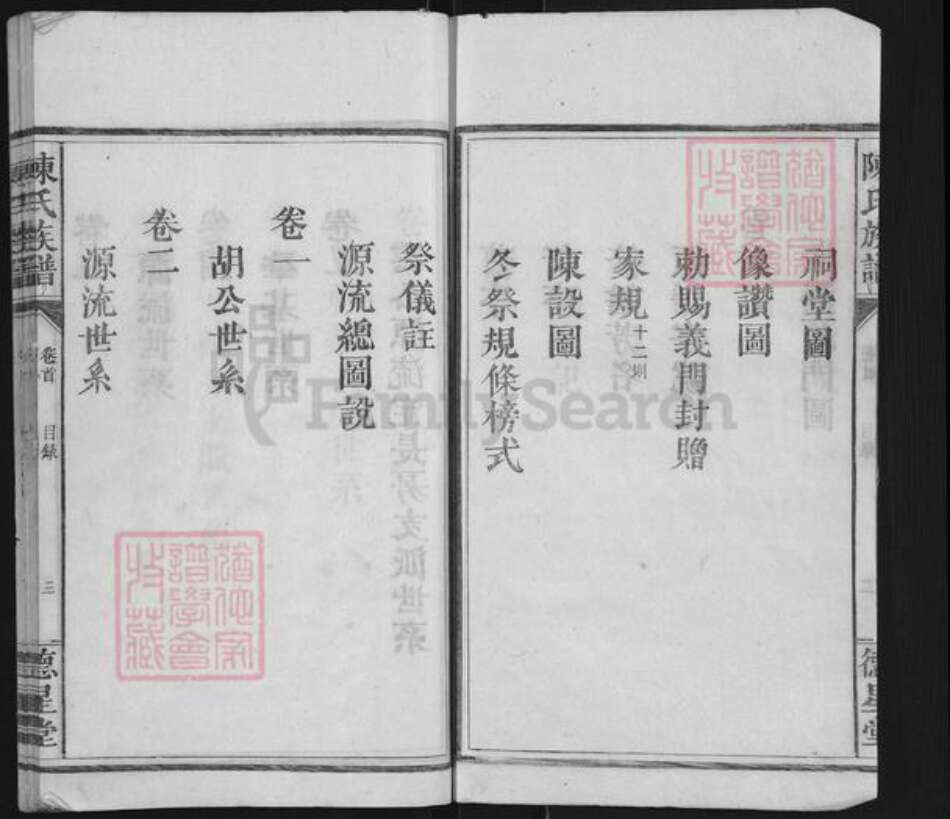 祠堂圖
像讚圖
勅賜義門封贈
家規十二則
陳設圖
冬祭規條榜式
祭儀註
源流總圖說
卷一
胡公世系
卷二
源流世系
陳氏族譜
卷首
目錄
三
德星堂
陳氏族譜
德星堂
猶他家譜學會收藏
猶他家譜學會收藏
FamilySearch